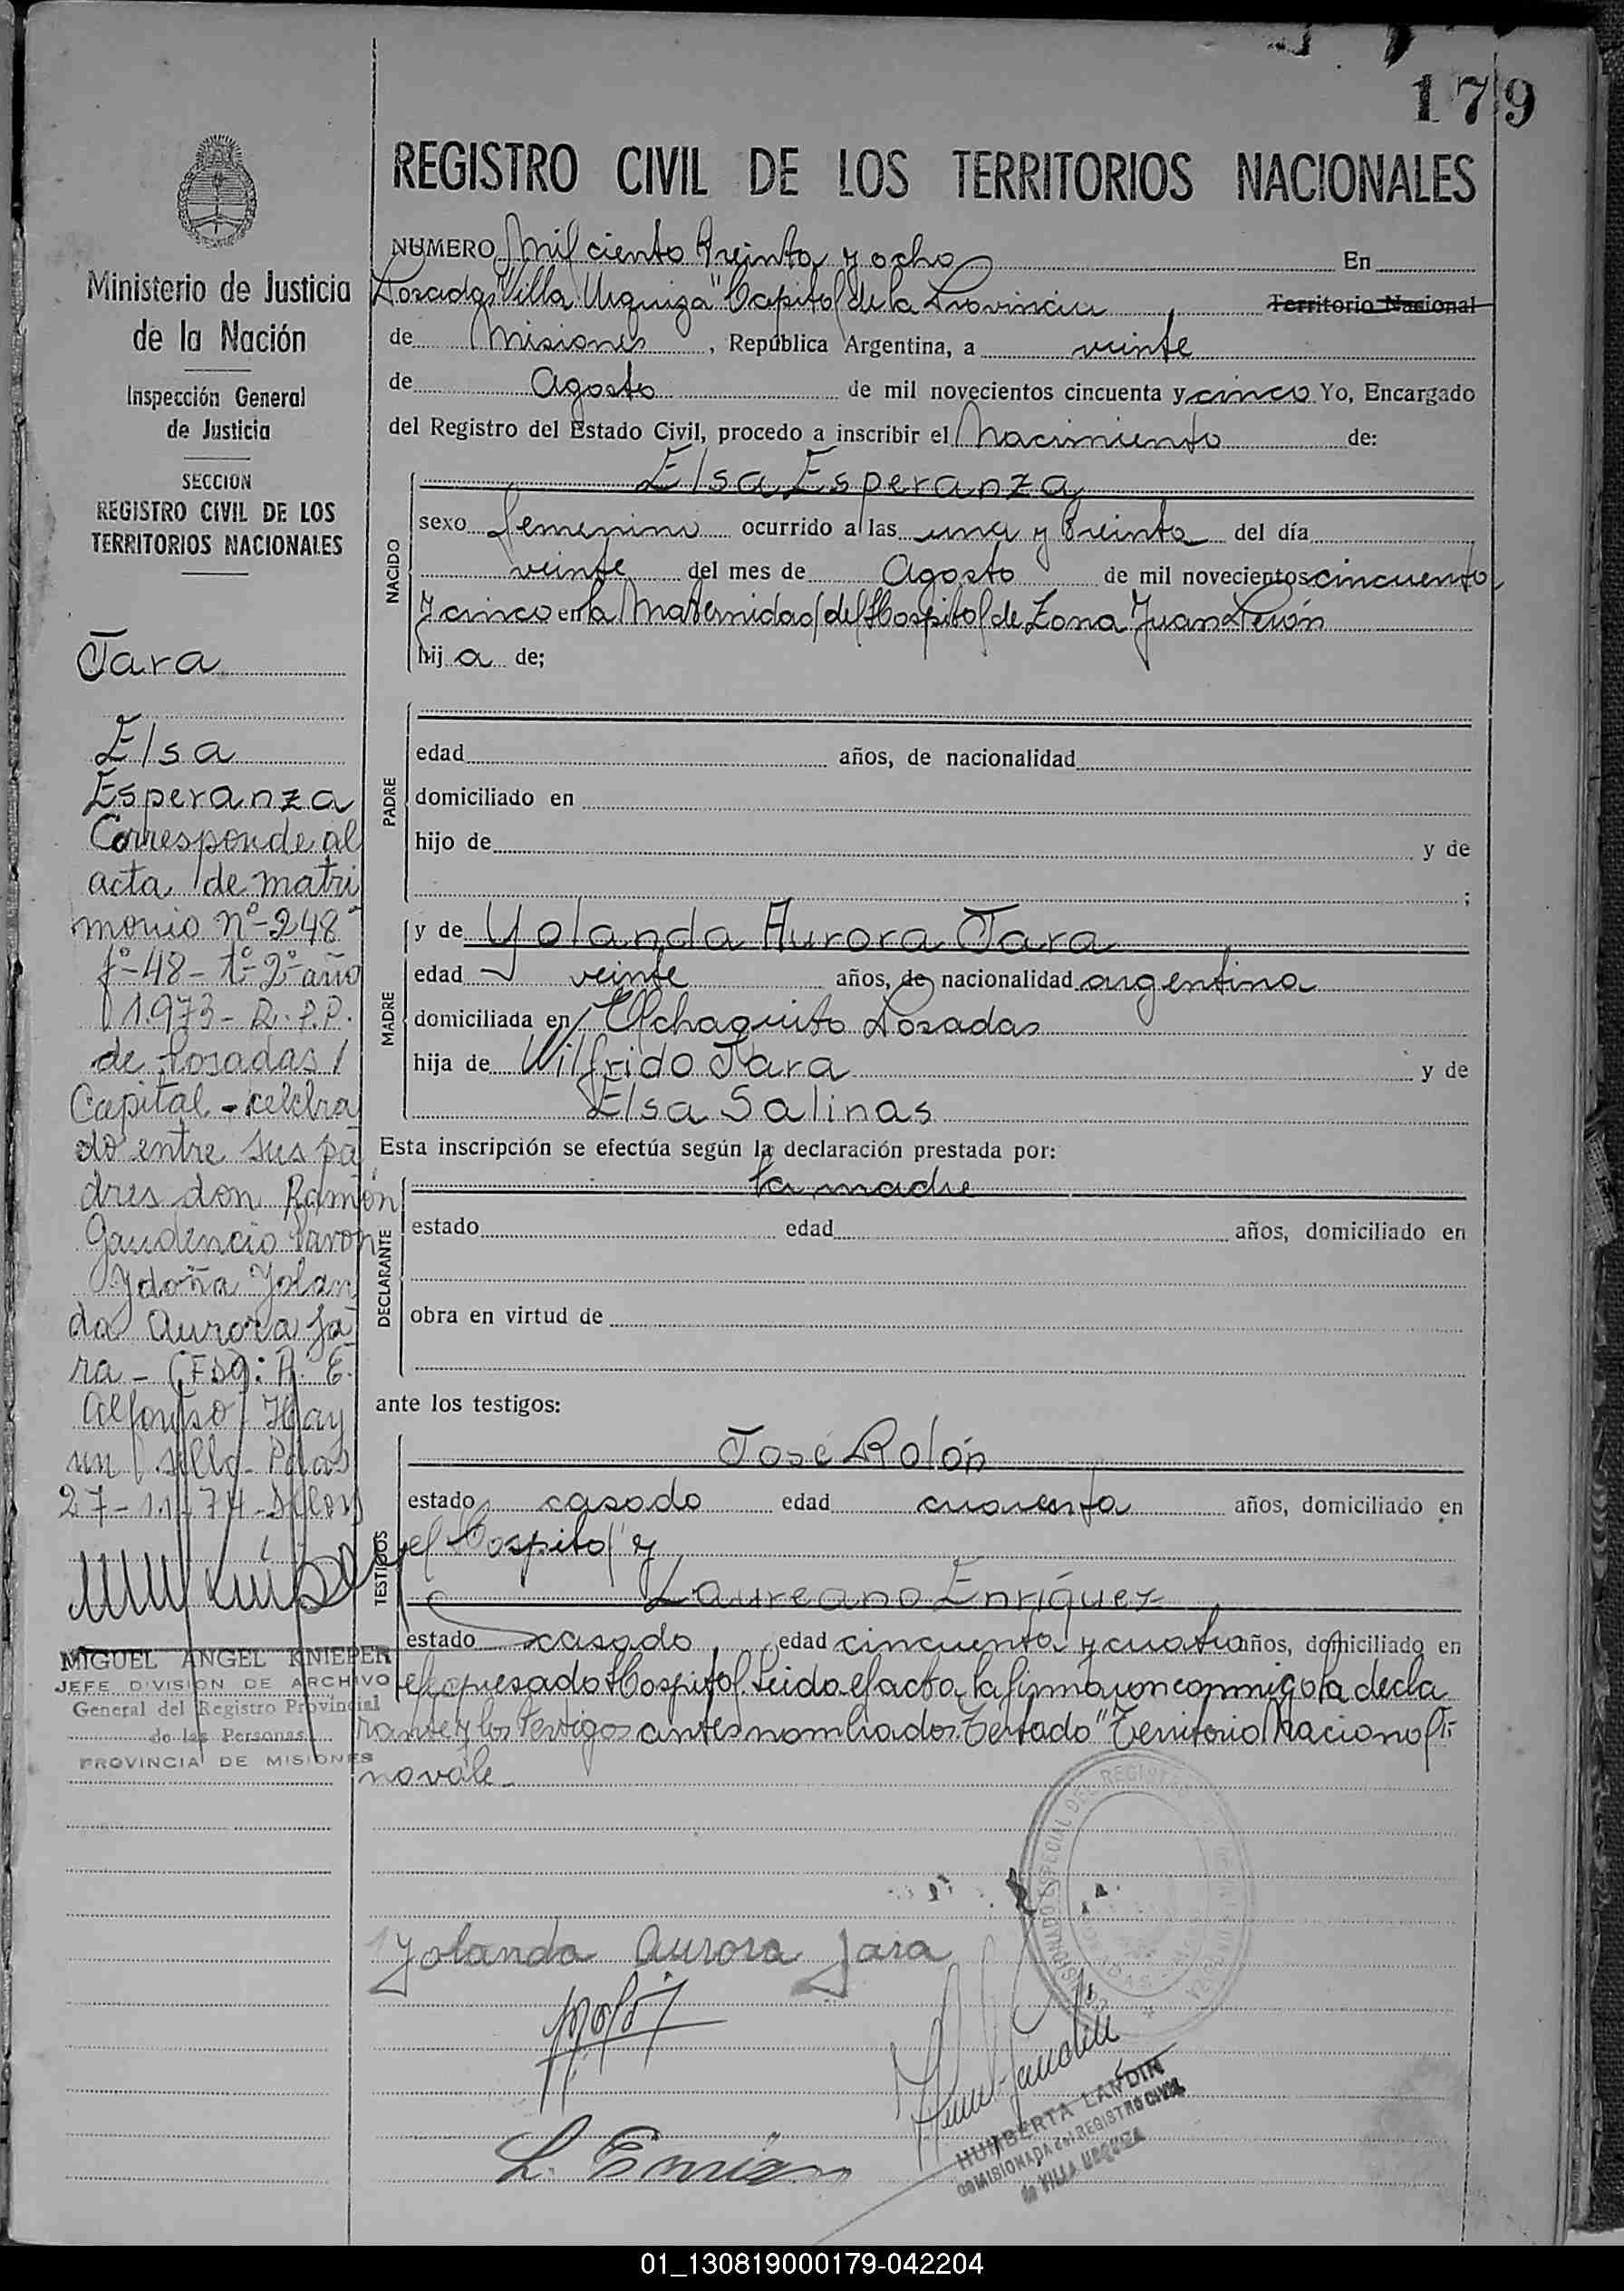 179
Ministerio de Justicia
de la Nación
Inspección General
de Justicia
SECCION
REGISTRO CIVIL DE LOS
TERRITORIOS NACIONALES
Jara
Elsa
Esperanza
Corresponde al
acta de matri
monio nº-248-
fº-48-tº-2º-año
1.973- R.P.P.
de Posadas/
Capital-celebra
do entre sus pa
dres don Ramón
Gaudencio
y doña Yolan
da Aurora Ja
ra-
Alfonso) Hay
un sello- Pdas
27-11-74-
MIGUEL ANGEL KNIEPER
JEFE DIVISION DE ARCHIVO
General del Registro Provincial
de las Personas
PROVINCIA DE MISIONES
REGISTRO CIVIL DE LOS TERRITORIOS NACIONALES
NUMERO Mil ciento treinta y ocho En
Posadas "Villa Urquiza" Capital de la Provincia Territorio Nacional
de Misiones, República Argentina, a veinte
de Agosto de mil novecientos cincuenta y cinco Yo, Encargado
del Registro del Estado Civil, procedo a inscribir el Nacimiento de:
NACIDO
Elsa Esperanza
sexo femenino ocurrido a las una y treinta del día
veinte del mes de Agosto de mil novecientos cincuenta
y cinco en la Maternidad del Hospital de Zona Juan Perón
hij a de;
PADRE
edad años, de nacionalidad
domiciliado en
hijo de y de
;
MADRE
y de Yolanda Aurora Jara
edad veinte años, de nacionalidad argentina
domiciliada en El chaquito Posadas
hija de Wilfrido Jara y de
Elsa Salinas
Esta inscripción se efectúa según la declaración prestada por:
DECLARANTE
la madre
estado edad años, domiciliado en
obra en virtud de
ante los testigos:
TESTIGOS
José Rolón
estado casado edad cuarenta años, domiciliado en
el Hospital y
Laureano Enríquez
estado casado, edad cincuenta y cuatro años, domiciliado en
el expresado Hospital. Leida el acta, la firmaron conmigo la decla
rante y los testigos antes nombrados. Testado "Territorio Nacional":
no vale.
Yolanda Aurora Jara
HUMBERTA LANDIN
COMISIONADA del REGISTRO CIVIL
de VILLA URQUIZA
01_130819000179-042204